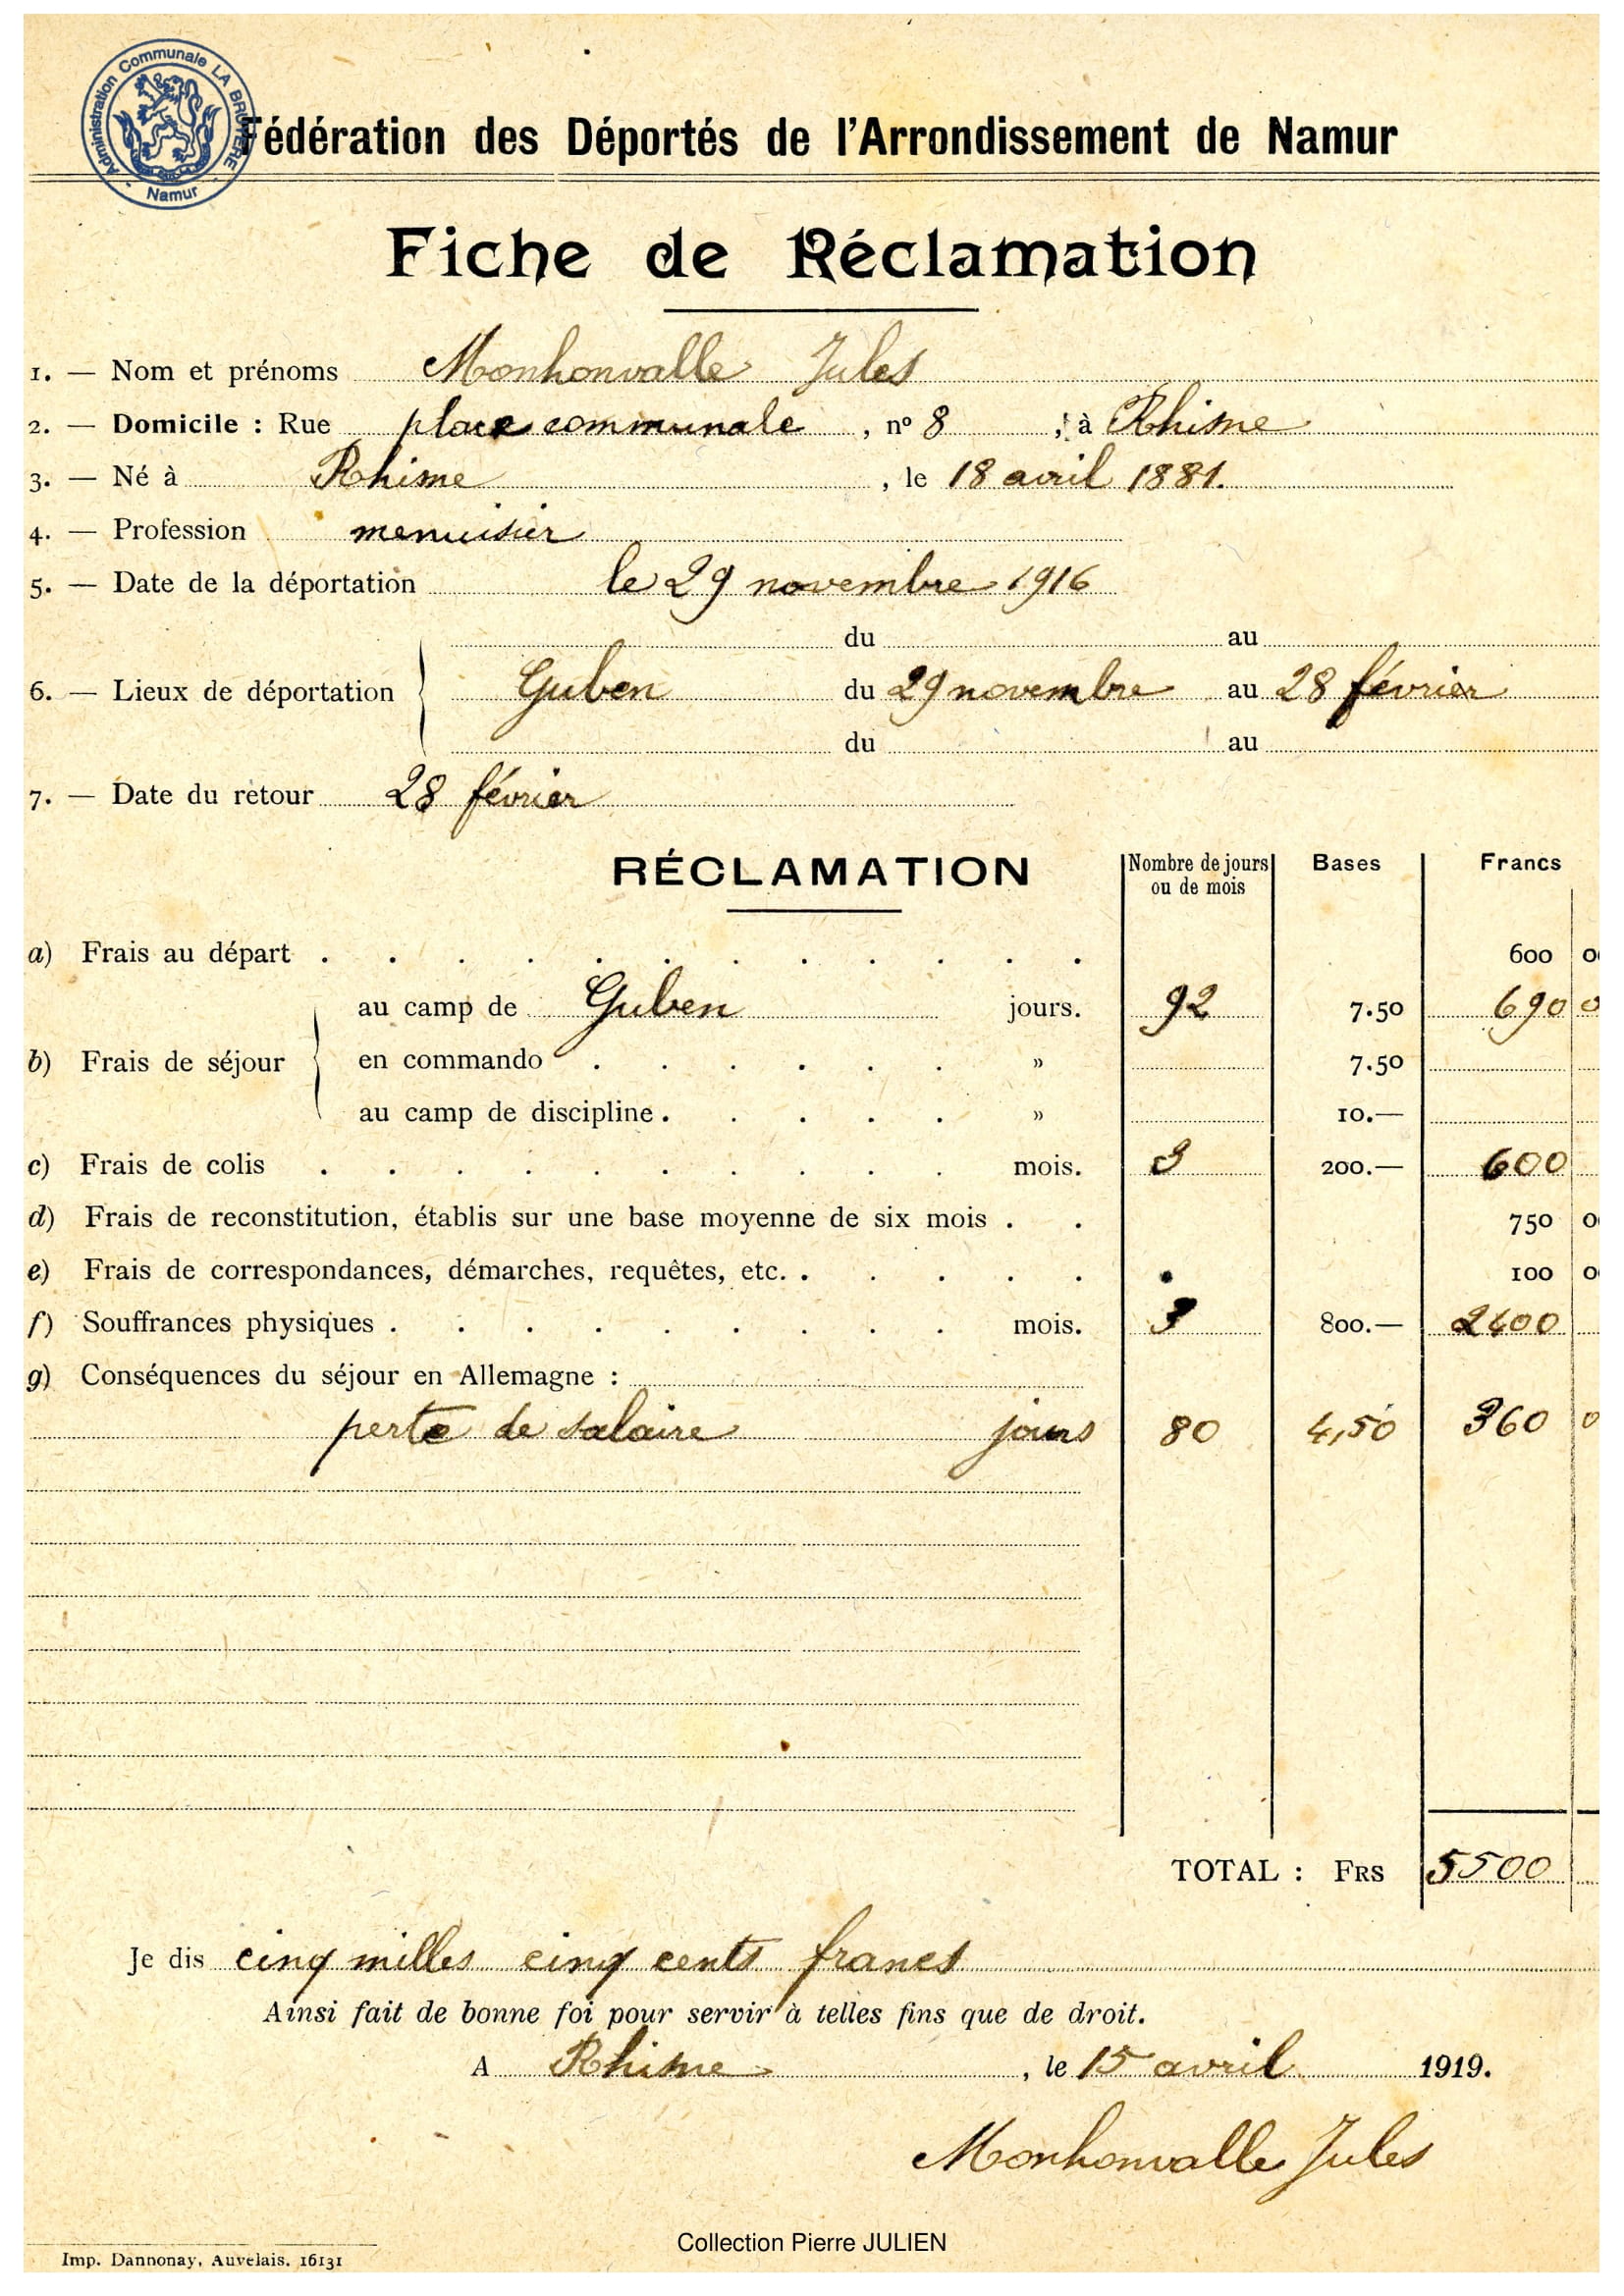 Administration Communale LA BRUYÈRE
- Namur -
Fédération des Déportés de l'Arrondissement de Namur
Fiche de Réclamation
1. — Nom et prénoms Monhonvalle Jules
2. — Domicile : Rue place communale, nº 8, à Rhisne
3. — Né à Rhisne, le 18 avril 1881.
4. — Profession menuisier
5. — Date de la déportation le 29 novembre 1916
du au
6. — Lieux de déportation Guben du 29 novembre au 28 février
du au
7. — Date du retour 28 février
RÉCLAMATION Nombre de jours ou de mois Bases Francs
a) Frais au départ . . . . . . . . . . . . 600
au camp de Guben jours. 92 7.50 690
b) Frais de séjour en commando . . . . . . » 7.50
au camp de discipline . . . . . » 10.—
c) Frais de colis . . . . . . . . . . mois. 3 200.— 600
d) Frais de reconstitution, établis sur une base moyenne de six mois . . 750
e) Frais de correspondances, démarches, requêtes, etc. . . . . . 100
f) Souffrances physiques . . . . . . . . . mois. 3 800.— 2400
g) Conséquences du séjour en Allemagne :
perte de salaire jours 80 4,50 360
TOTAL : FRS 5500
Je dis cinq milles cinq cents francs
Ainsi fait de bonne foi pour servir à telles fins que de droit.
A Rhisne, le 15 avril 1919.
Monhonvalle Jules
Collection Pierre JULIEN
Imp. Dannonay, Auvelais. 16131